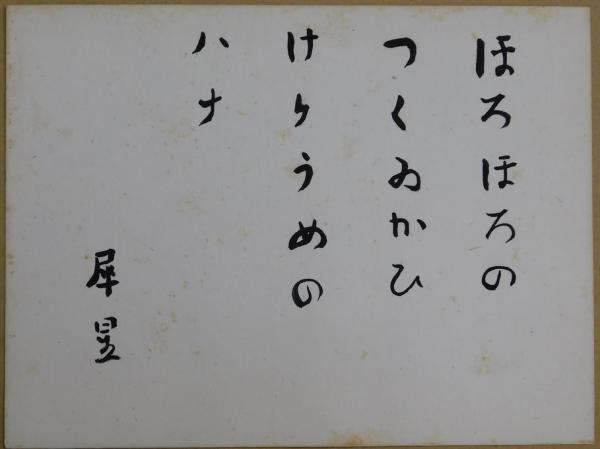 ほろほろの
つくゐかひ
けりうめの
ハナ
犀星